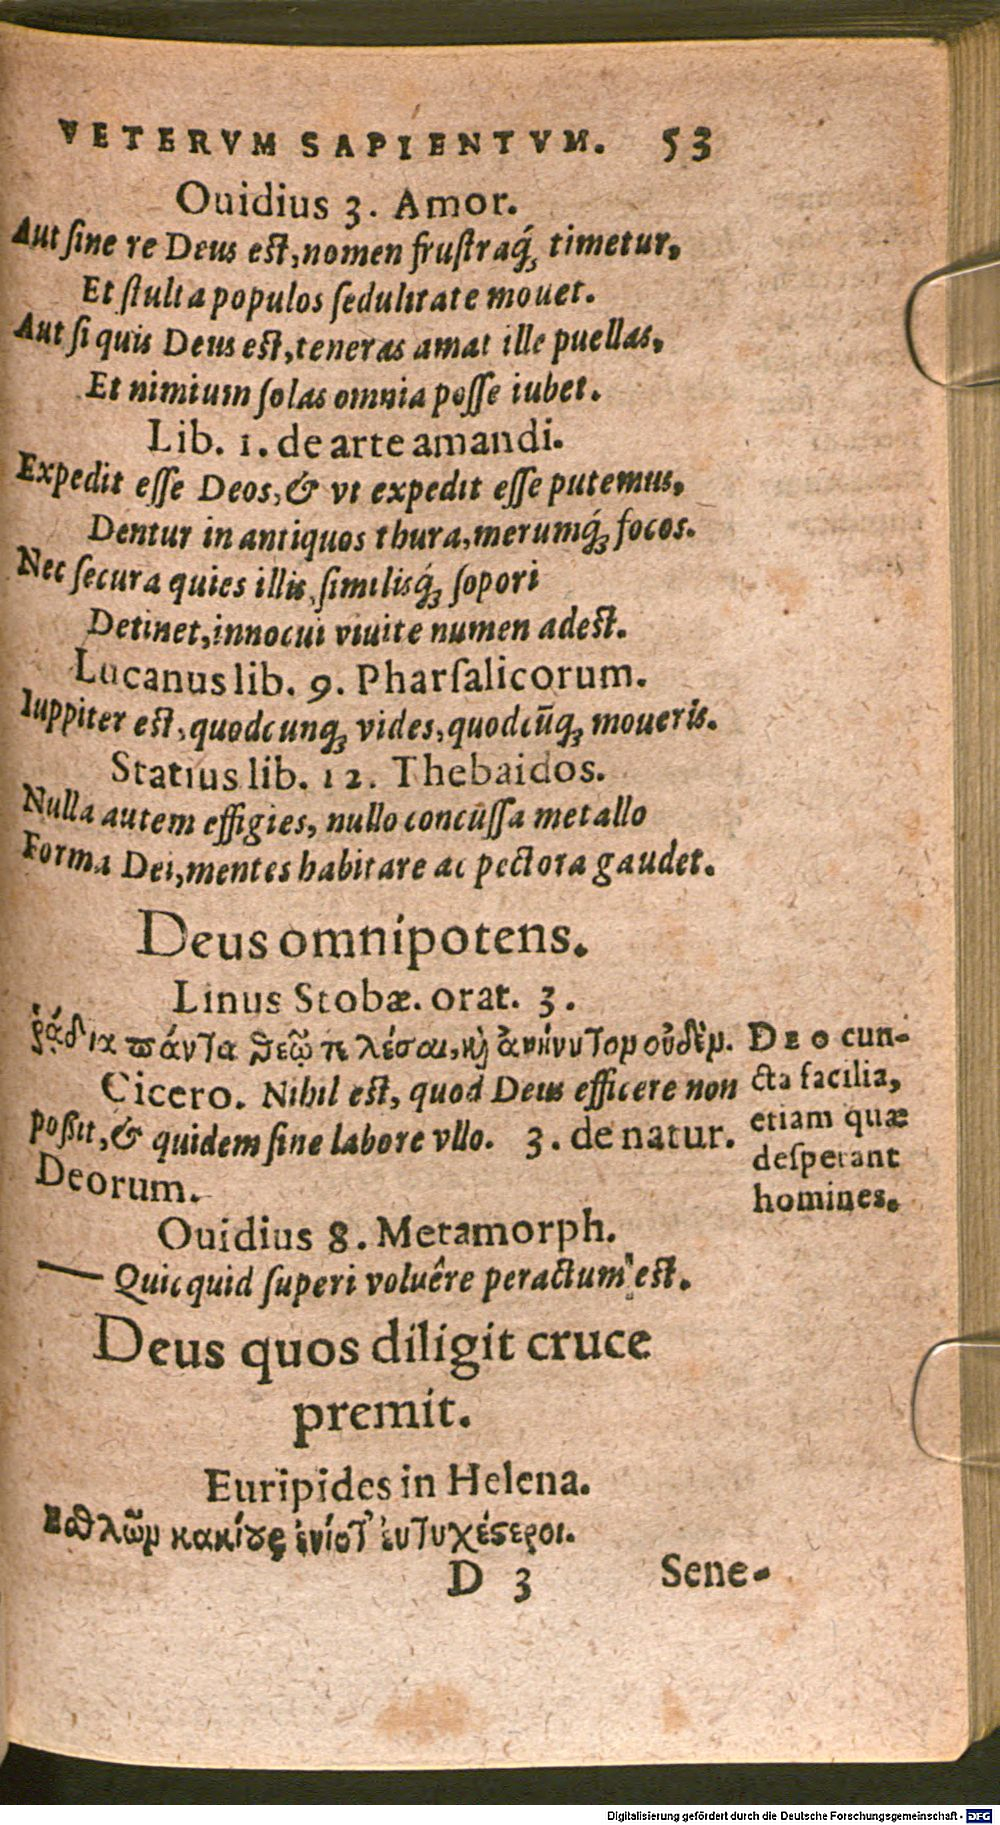 VETERVM SAPIENTVM. 53
Ouidius 3. Amor.
Aut ſine re Deus est, nomen fruſtraq́; timetur,
Et ſtulta populos ſedulitate mouet.
Aut ſi quis Deus est, teneras amat ille puellas,
Et nimium ſolas omnia poſſe iubet.
Lib. 1. de arte amandi.
Expedit eſſe Deos, & vt expedit eſſe putemus,
Dentur in antiquos thura, merumq́; focos.
Nec ſecura quies illis, ſimilisq́; ſopori
Detinet, innocui viuite numen adest.
Lucanus lib. 9. Pharſalicorum.
Iuppiter est, quodcunq; vides, quodcũq; moueris.
Statius lib. 12. Thebaidos.
Nulla autem effigies, nullo concuſſa metallo
Forma Dei, mentes habitare ac pectora gaudet.
Deus omnipotens.
Linus Stobæ. orat. 3.
ῥᾴδια πάντα θεῷ τελέσαι, καὶ ἀνήνυτον οὐδέν.
Cicero. Nihil est, quod Deus efficere non
poßit, & quidem ſine labore vllo. 3. de natur.
Deorum.
DEO cun-
cta facilia,
etiam quæ
deſperant
homines.
Ouidius 8. Metamorph.
— Quicquid ſuperi voluêre peractum est.
Deus quos diligit cruce
premit.
Euripides in Helena.
Εσθλῶν κακίους ἐνίοτ' εὐτυχέστεροι.
D 3 Sene-
Digitalisierung gefördert durch die Deutsche Forschungsgemeinschaft - DFG